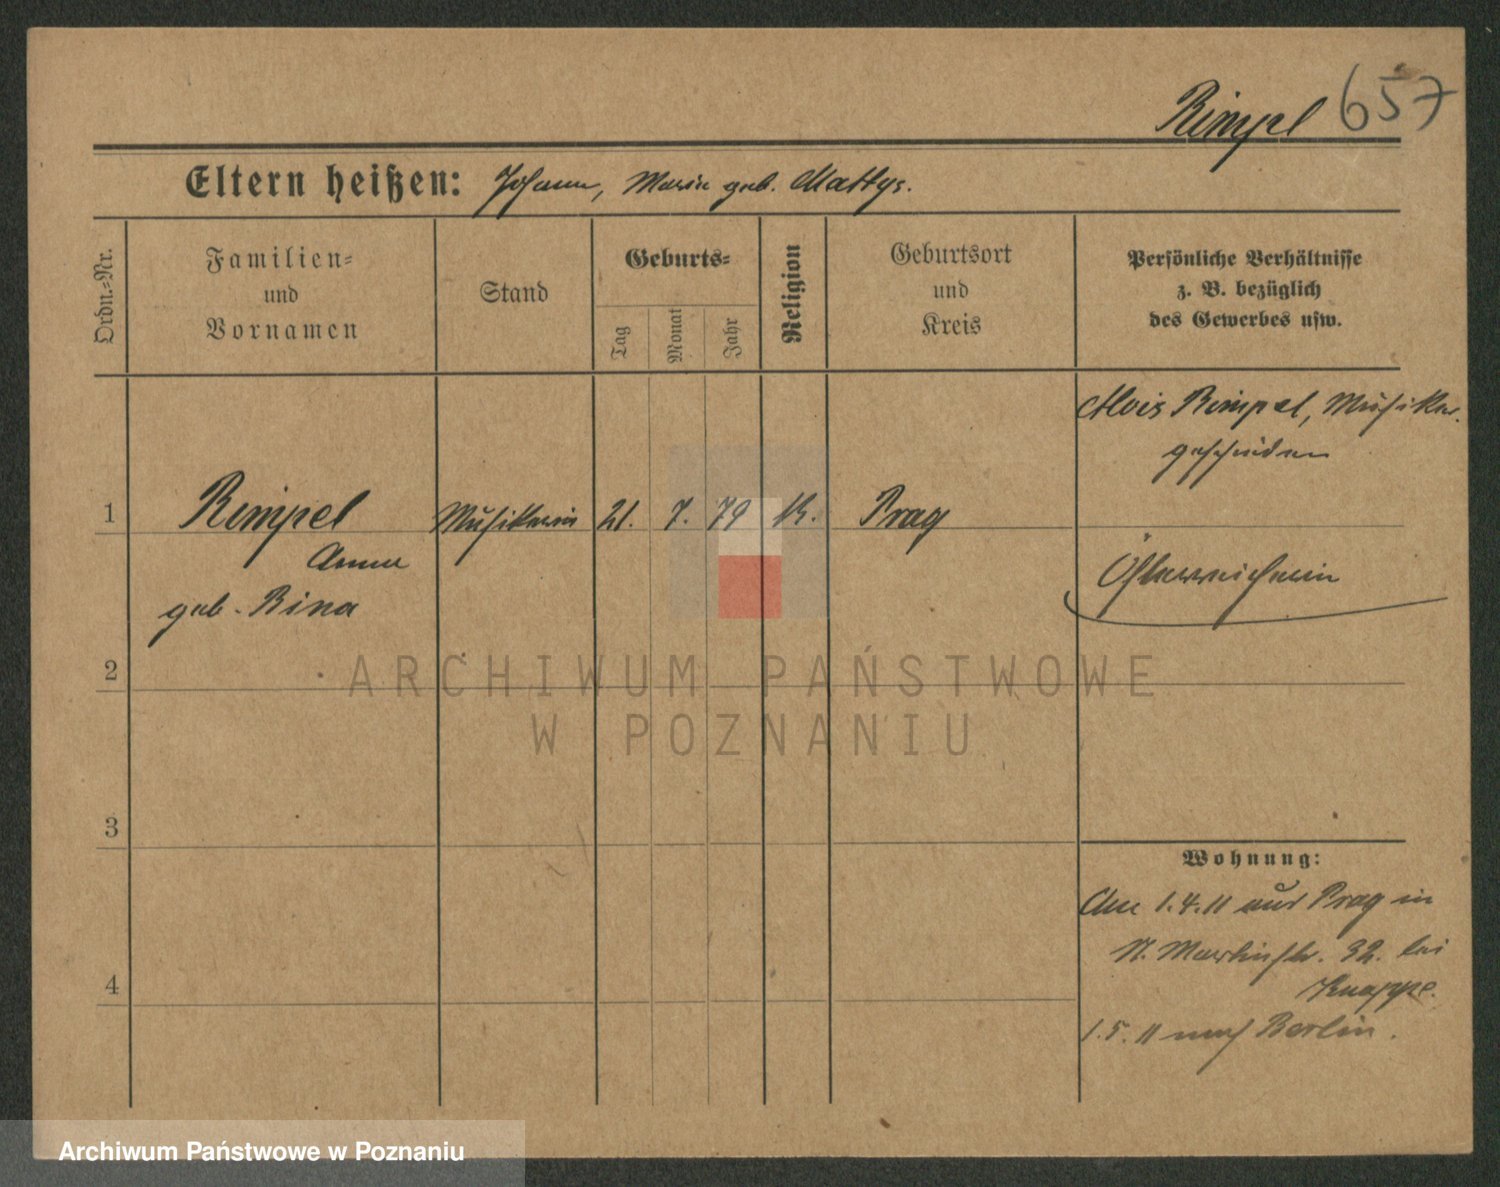 657
Rimpel
Eltern heißen: Johann, Maria geb. Mattys.
Ordn.-Nr.
Familien-
und
Vornamen
Stand
Geburts-
Tag
Monat
Jahr
Religion
Geburtsort
und
Kreis
Persönliche Verhältnisse
z. B. bezüglich
des Gewerbes usw.
Alois Rimpel, Musiker.
geschieden
1 Rimpel Musikerin 21. 7. 79 K. Prag
Anna
geb. Bina
Österreicherin
2
ARCHIWUM PAŃSTWOWE
W POZNANIU
3
Wohnung:
Am 1.4.11 aus Prag in
St. Martinstr. 32. bei
Knappe.
4
1.5.11 nach Berlin.
Archiwum Państwowe w Poznaniu